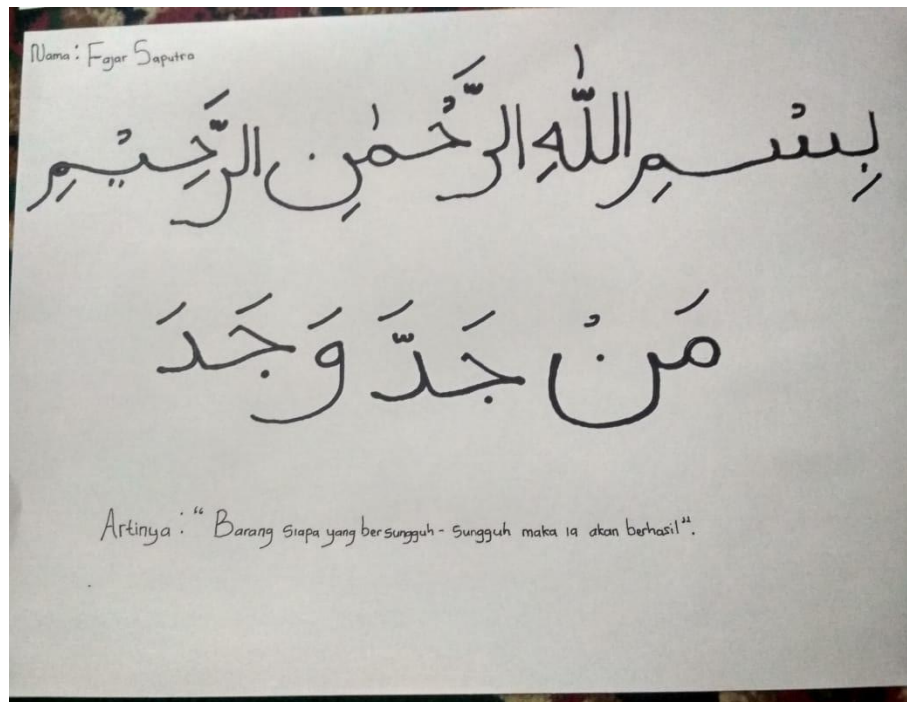 Nama : Fajar Saputra
بِسْمِ اللّٰهِ الرَّحْمٰنِ الرَّحِيْمِ
مَنْ جَدَّ وَجَدَ
Artinya : "Barang siapa yang bersungguh - sungguh maka ia akan berhasil".